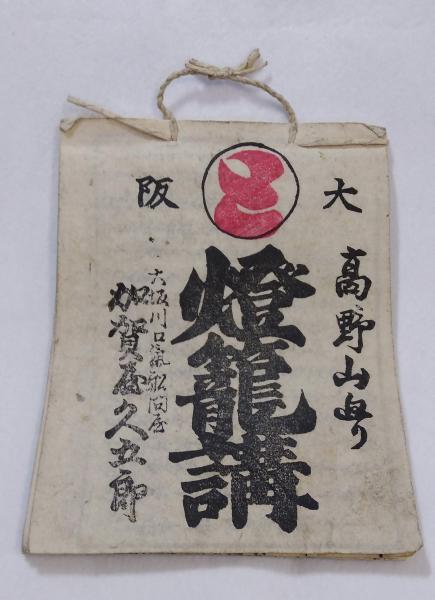 大阪
高野山ゟ
燈籠講
大坂川口氣舩問屋
加賀屋久五郎